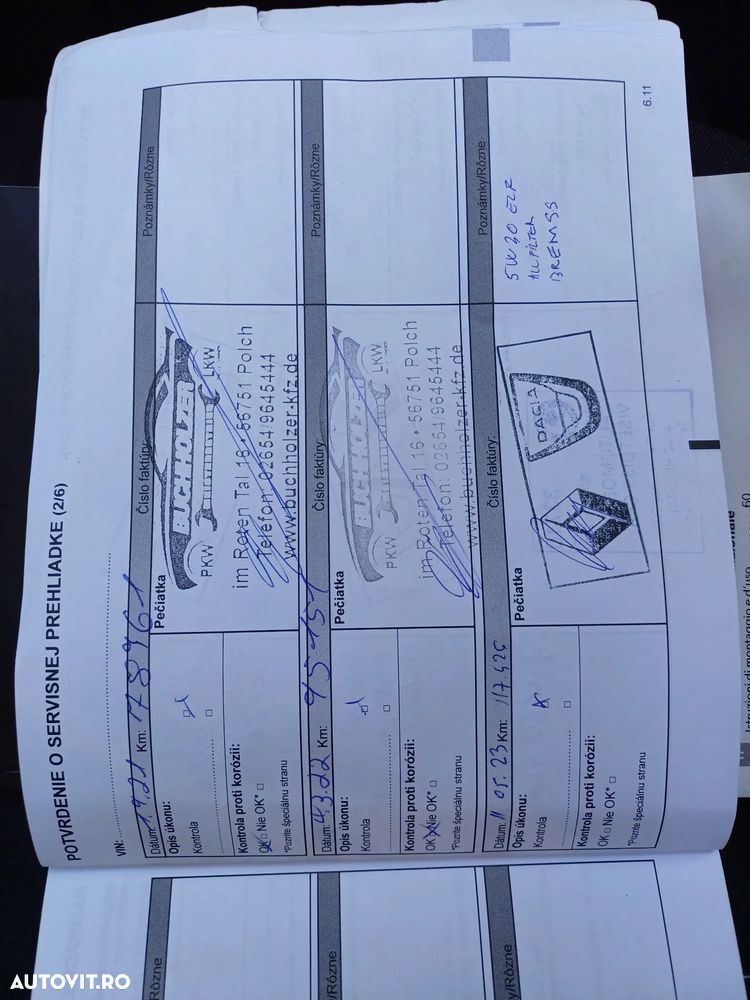 POTVRDENIE O SERVISNEJ PREHLIADKE (2/6)
VIN:
Dátum: Km: 78961 Číslo faktúry: Poznámky/Rôzne
Opis úkonu: Pečiatka
Kontrola
Kontrola proti korózii:
OK □ Nie OK* □
*Pozrite špeciálnu stranu
BUCHHOLZER
PKW LKW
im Roten Tal 16 • 56751 Polch
Telefon: 02654/9645444
www.buchholzer-kfz.de
Dátum: 4.3.22 Km: Číslo faktúry: Poznámky/Rôzne
Opis úkonu: Pečiatka
Kontrola
Kontrola proti korózii:
OK Nie OK* □
*Pozrite špeciálnu stranu
BUCHHOLZER
PKW LKW
im Roten Tal 16 • 56751 Polch
Telefon: 02654/9645444
www.buchholzer-kfz.de
Dátum: 11 05. 23 Km: 117.426 Číslo faktúry: Poznámky/Rôzne
Opis úkonu: Pečiatka
Kontrola
Kontrola proti korózii:
OK □ Nie OK* □
*Pozrite špeciálnu stranu
DACIA
5W30
6.11
AUTOVIT.RO